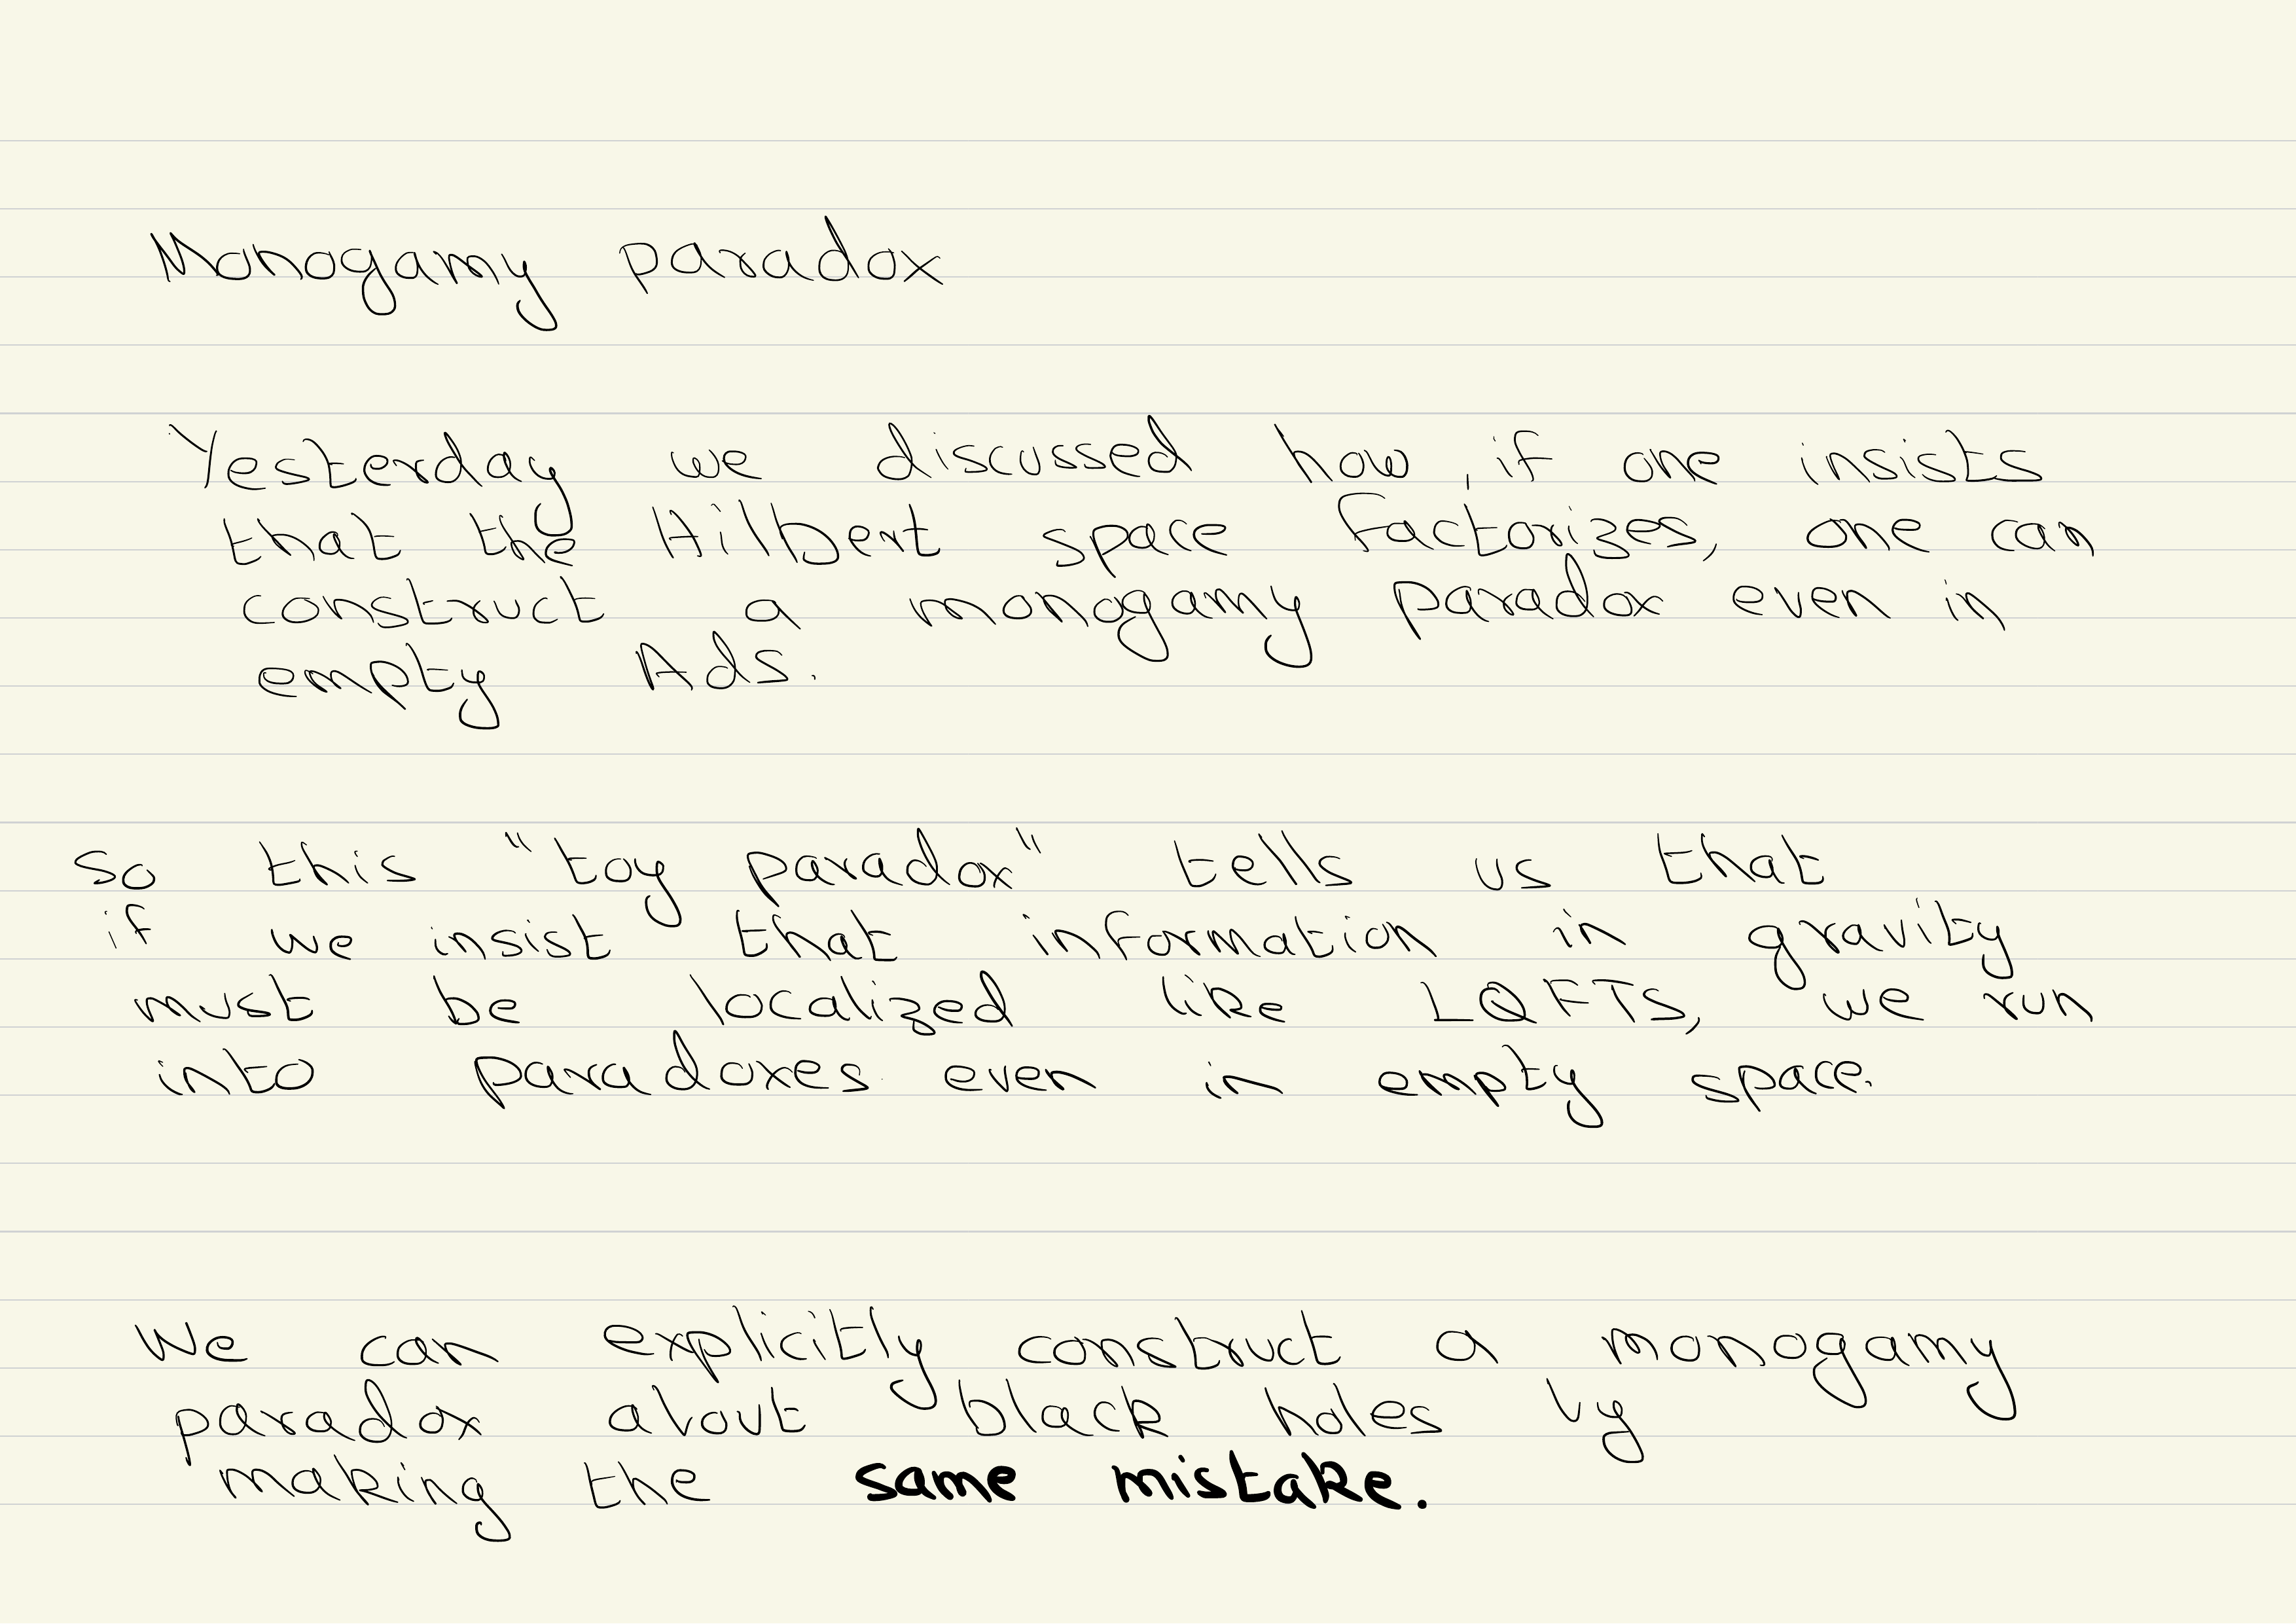 Monogamy paradox
Yesterday we discussed how, if one insists
that the Hilbert space factorizes, one can
construct a monogamy paradox even in
empty AdS.
So this "toy paradox" tells us that
if we insist that information in gravity
must be localized like LQFTs, we run
into paradoxes even in empty space.
We can explicitly construct a monogamy
paradox about black holes by
making the same mistake.